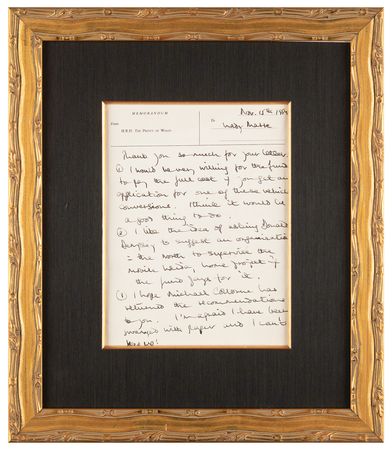 MEMORANDUM
Nov. 15th
From
H.R.H. The Prince of Wales
To
Thank you so much for your letter.
I would be very willing for the fund
to pay the full cost if you get an
application for one of these vehicle
conversions. I think it would be
a good thing to do.
② I like the idea of asking Donald
to suggest an organisation
in the North to supervise the
home project if
the fund pays for it.
I hope Michael has
returned the recommendations
to you. I'm afraid I have been
with paper and I can't